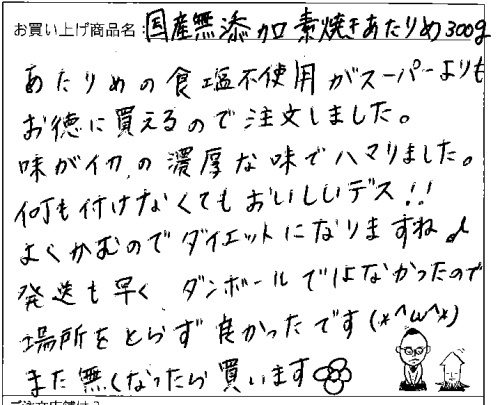 お買い上げ商品名：国産無添加素焼きあたりめ300g
あたりめの食塩不使用がスーパーよりも
お徳に買えるので注文しました。
味がイカの濃厚な味でハマりました。
何も付けなくてもおいしいデス!!
よくかむのでダイエットになりますね♪
発送も早く、ダンボールではなかったので
場所をとらず良かったです(*^ω^*)
また無くなったら買います